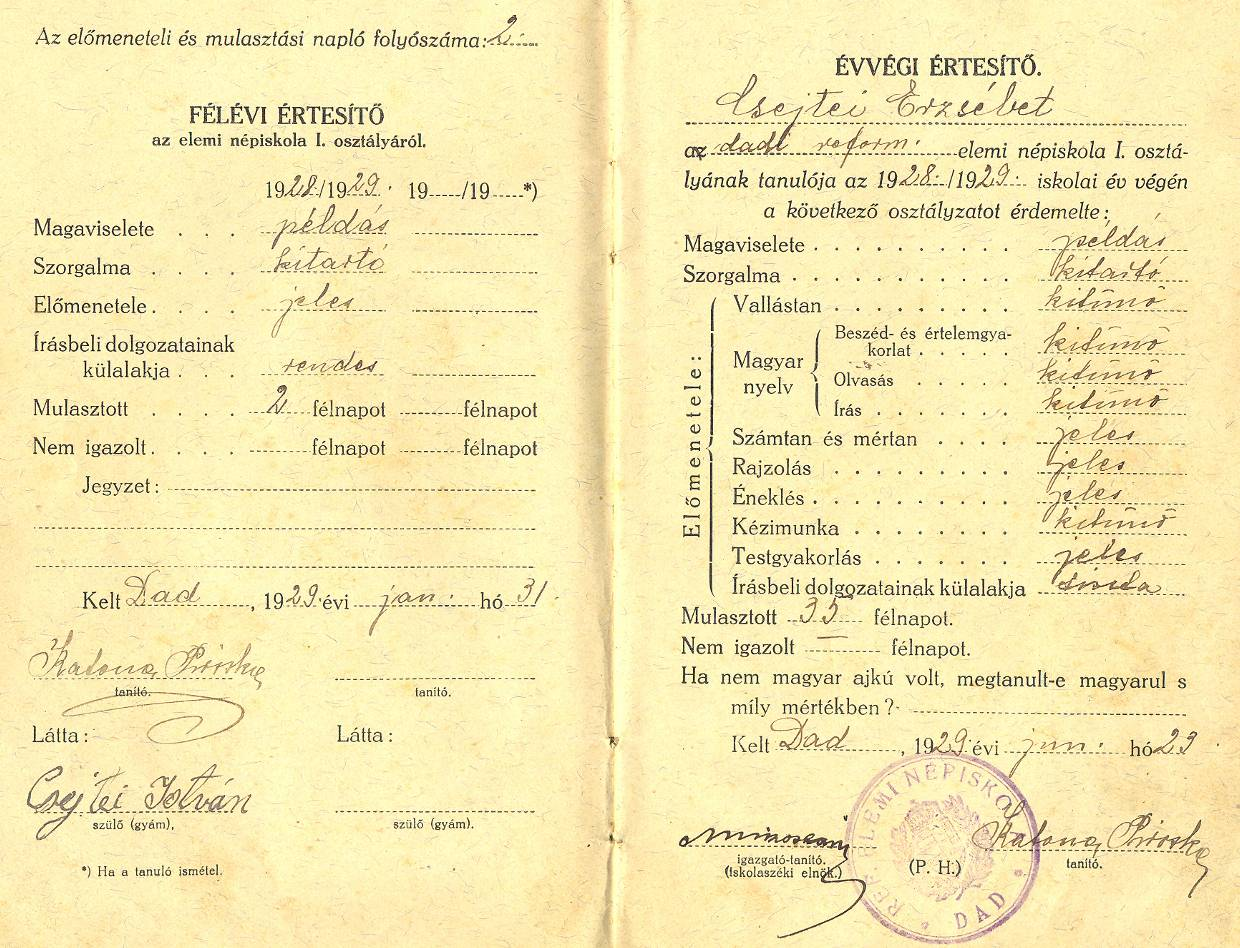 Az előmeneteli és mulasztási napló folyószáma: 2
FÉLÉVI ÉRTESÍTŐ
az elemi népiskola I. osztályáról.
1928./1929. 19 /19 *)
Magaviselete példás
Szorgalma kitartó
Előmenetele jeles
Írásbeli dolgozatainak
külalakja rendes
Mulasztott 2 félnapot félnapot
Nem igazolt félnapot félnapot
Jegyzet:
Kelt Dad, 1929. évi jan. hó 31.
Katona Piroska
tanító. tanító.
Látta: Látta:
Csejtei István
szülő (gyám), szülő (gyám).
*) Ha a tanuló ismétel.
ÉVVÉGI ÉRTESÍTŐ.
Csejtei Erzsébet
az dadi reform. elemi népiskola I. osztá-
lyának tanulója az 1928./1929. iskolai év végén
a következő osztályzatot érdemelte:
Magaviselete példás
Szorgalma kitartó
Előmenetele:
Vallástan kitünö
Magyar nyelv
Beszéd- és értelemgya-
korlat kitünö
Olvasás kitünö
Írás kitünö
Számtan és mértan jeles
Rajzolás jeles
Éneklés jeles
Kézimunka kitünö
Testgyakorlás jeles
Írásbeli dolgozatainak külalakja tiszta
Mulasztott 35 félnapot.
Nem igazolt — félnapot.
Ha nem magyar ajkú volt, megtanult-e magyarul s
míly mértékben? -
Kelt Dad, 1929. évi jun. hó 23.
REF. ELEMI NÉPISKOLA DAD
Katona Piroska
igazgató-tanító. (P. H.) tanító.
(iskolaszéki elnök.)